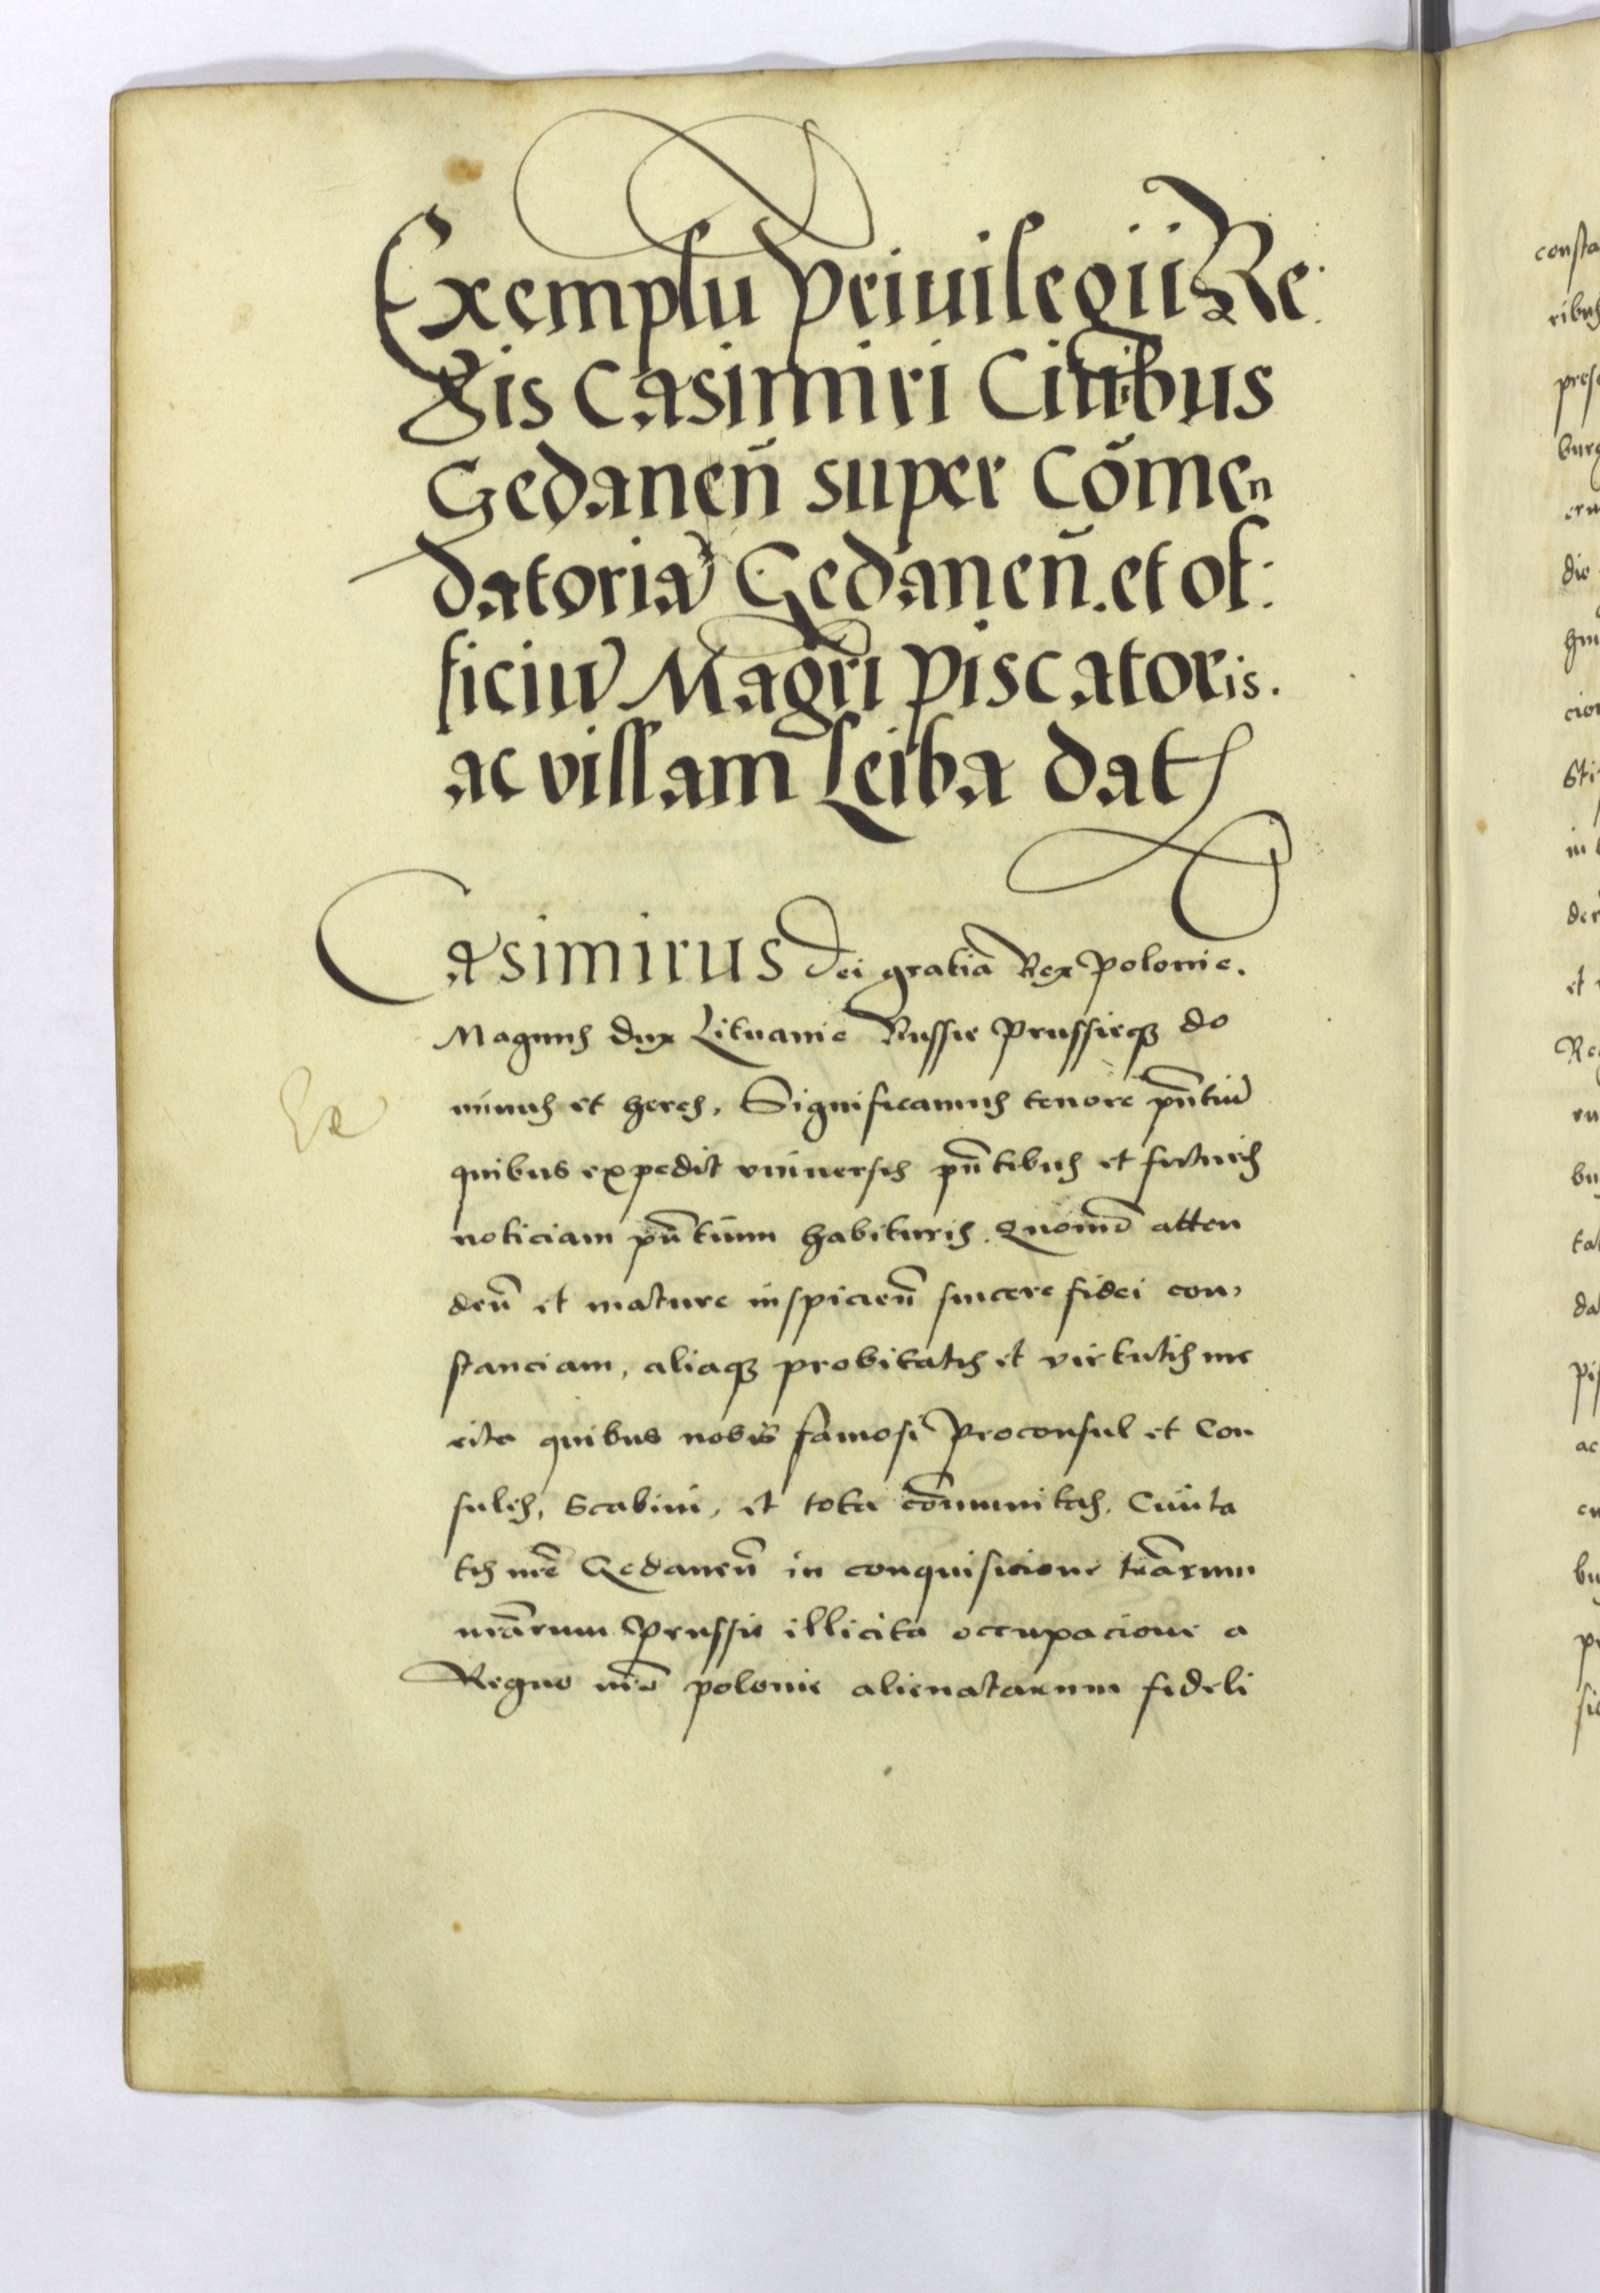 Exemplu Priuilegii Re
gis Casimiri Ciuibus
Gedaneñ super Cõmen
datoria Gedaneñ. et of
ficiu Magr̃i Piscatoris.
ac villam Leiba dat
Casimirus Dei gratia Rex Polonie.
Magnus dux Lituanie Russie Prussieqʒ do
minus et heres, Significamus tenore pñtiu
quibus expedit vniuersis pñtibus et futuris
noticiam pñtium habituris. Quomõ atten
deñ et mature inspicieñ sincere fidei con
stanciam, aliaqʒ probitatis et virtutis me
rita quibus nobis famosi Proconsul et Con
sules, Scabini, et tota cõmunitas, Ciuita
tis nr̃e Gedaneñ in conquisicione tr̃arum
nr̃arum Prussie illicita occupacione a
Regno nr̃o polonie alienatarum fideli
consta
ribus
pres
burg
die
cio
in
der
et
Re
bu
ta
da
pis
ac
bu